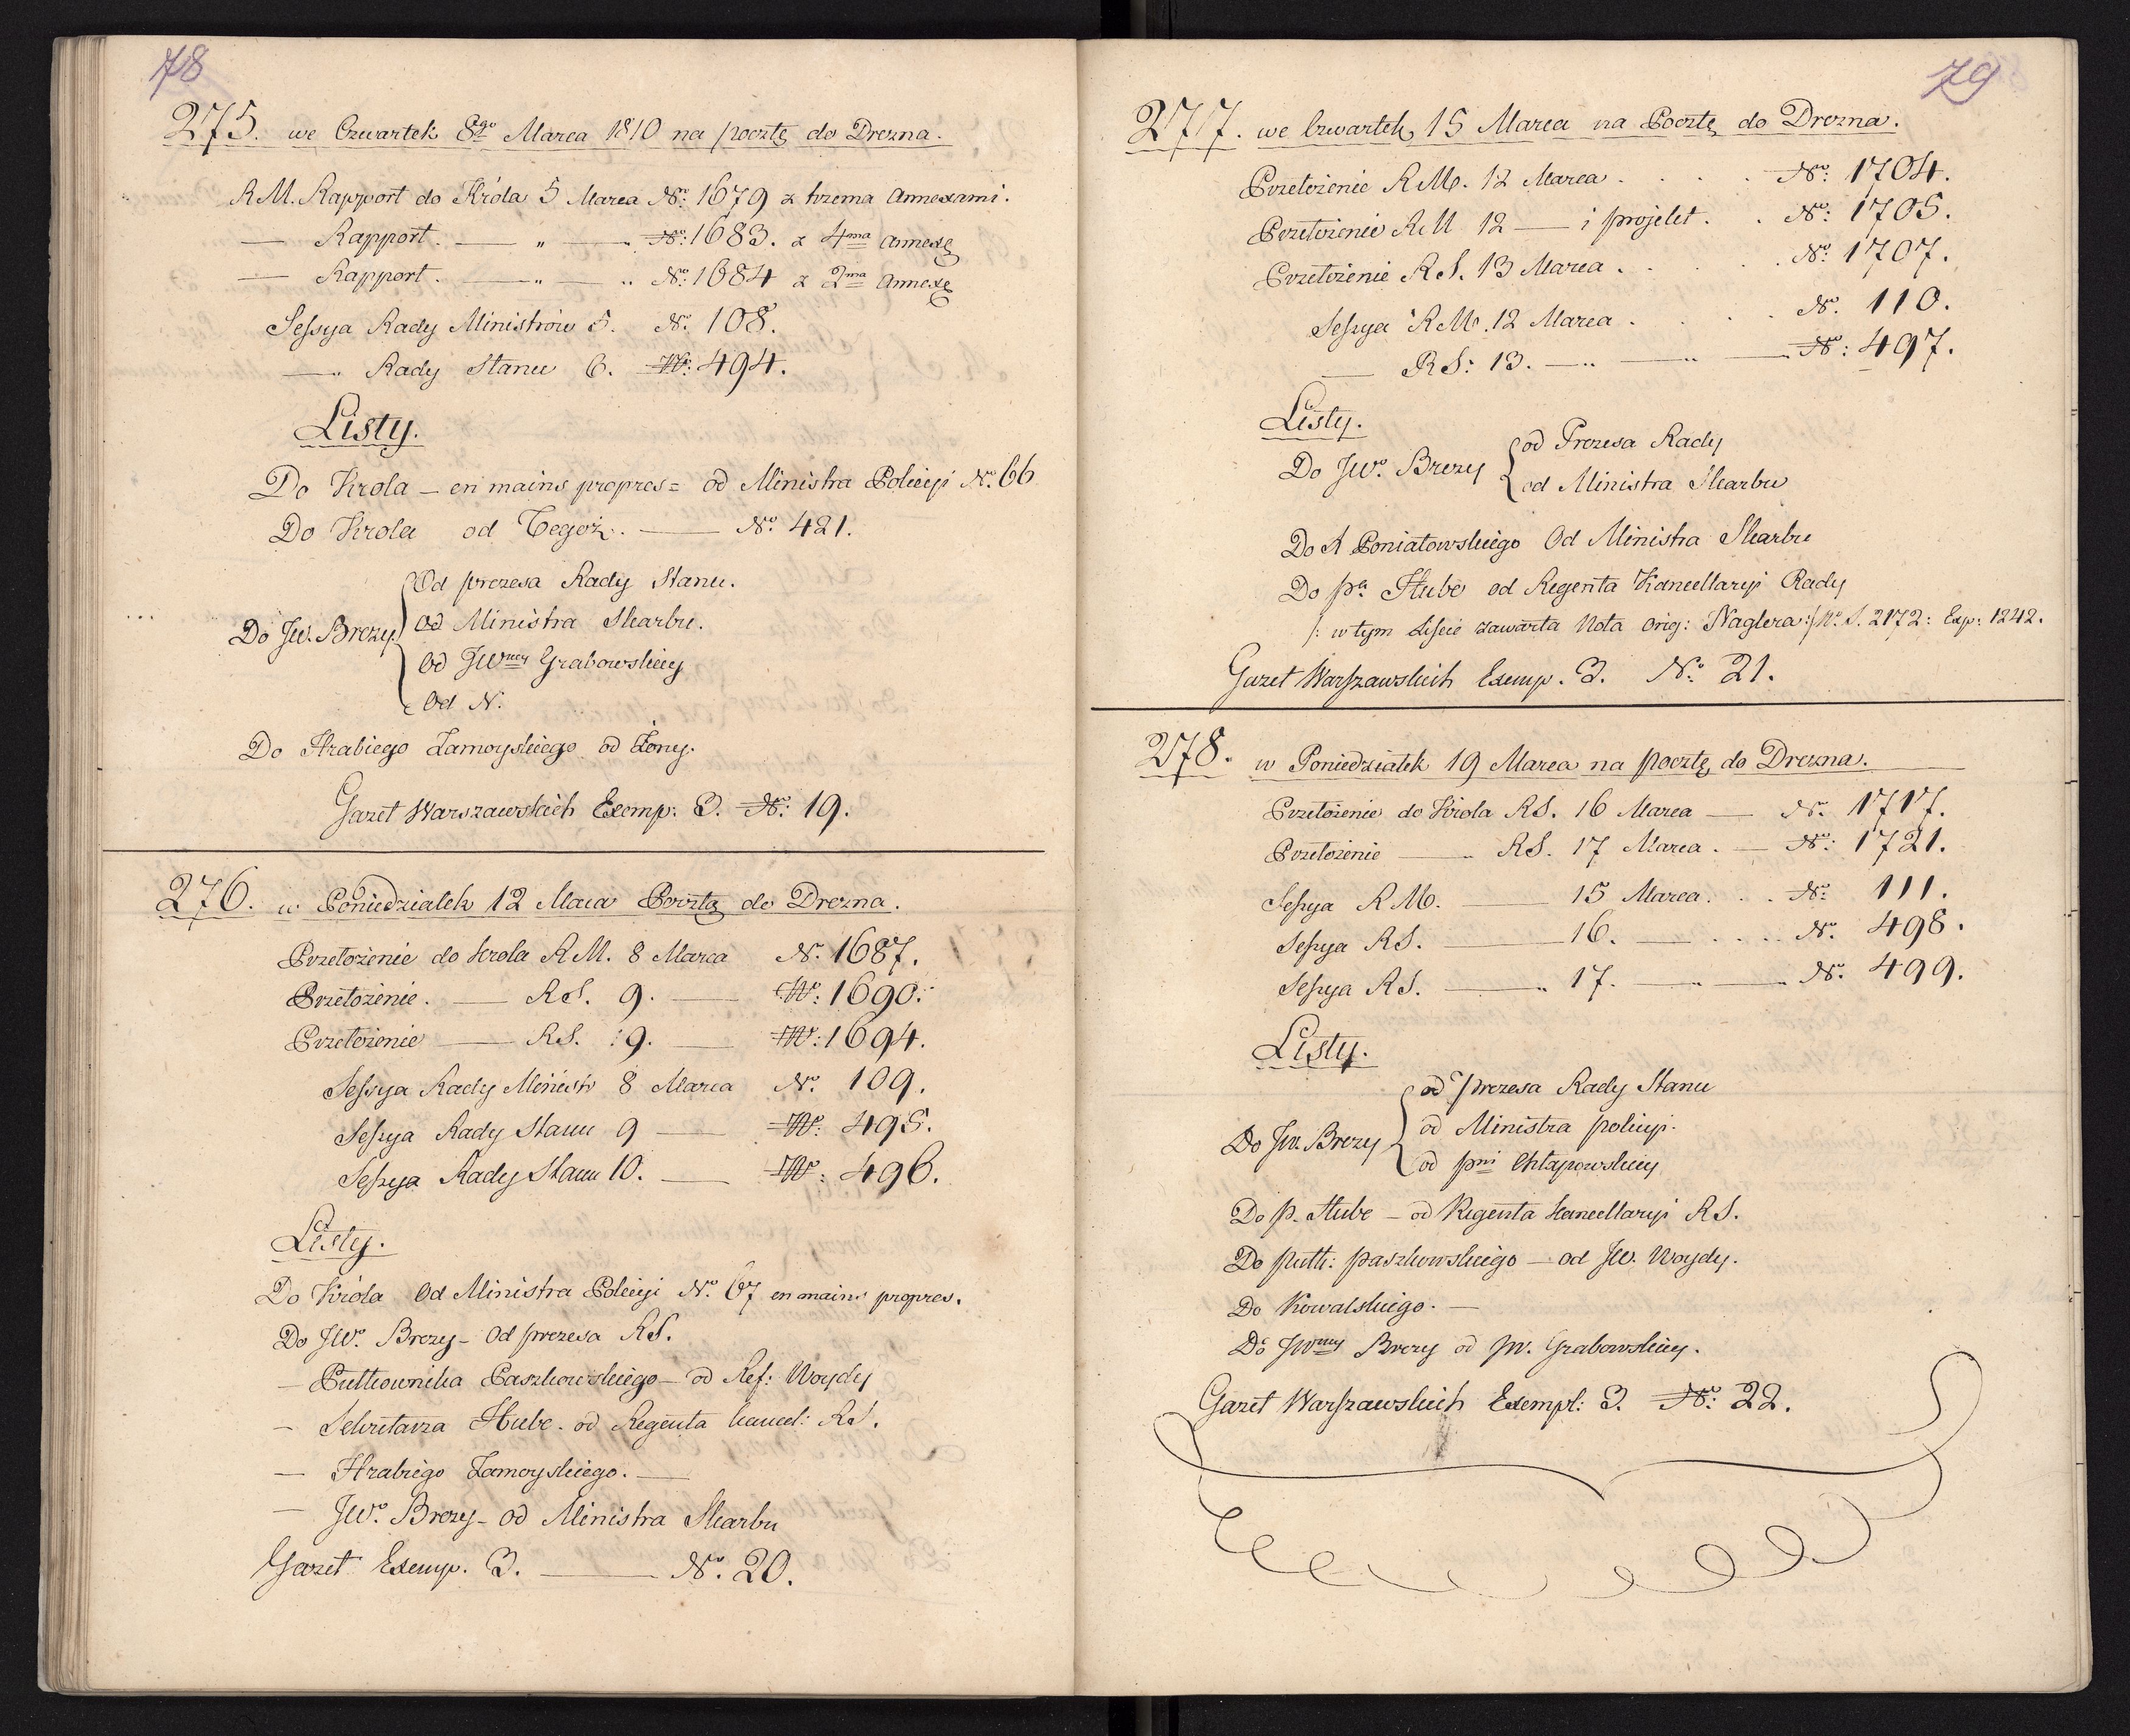 78
275. we Czwartek 8go Marca 1810 na pocztę do Drezna.
R M. Rapport do Króla 5 Marca No: 1679 z trzema Annexami.
— Rapport. — " — No: 1683. z 4ma Annexą
— Rapport. — " — " No: 1684 z 2ma Annexą
Sessya Rady Ministrów 5. No. 108.
— " Rady Stanu 6. No: 494.
Listy.
Do Krola – en mains propres = od Ministra Policyi No. 66
Do Krola od Tegoż. — No. 421.
Do Jw. Brezy
Od prezesa Rady Stanu.
Od Ministra Skarbu.
Od JWney Grabowskiey
Od N.
Do Hrabiego Zamoyskiego od Żony.
Gazet Warszawskich Exemp: 3. No: 19.
276. w Poniedziałek 12 Marca Pocztą do Drezna.
Przełożenie do Krola R M. 8 Marca No. 1687.
Przełożenie. — R S. 9. — No: 1690.
Przełożenie — R S. 9. — No: 1694.
Sessya Rady Ministr 8 Marca No. 109.
Sessya Rady Stanu 9 — No: 495.
Sessya Rady Stanu 10. — No: 496.
Listy.
Do Króla Od Ministra Policyi No. 67 en mains propres.
Do JWo. Brezy – Od prezesa R S.
— Pułkownika Paszkowskiego – od Ref: Woydy
— Sekretarza Hube – od Regenta kancel: R S.
— Hrabiego Zamoyskiego. —
— JWo. Brezy – Od Ministra Skarbu
Gazet Exemp. 3. — No. 20.
79
277. we Czwartek 15 Marca na Pocztę do Drezna.
Przełożenie R M. 12 Marca . . . . No: 1704.
Przełożenie R M 12 — i projekt . . No: 1705.
Przełożenie R S. 13 Marca . . . . No: 1707.
Sessya R M. 12 Marca . . . . No. 110.
— R S: 13. — " — " — No: 497.
Listy.
Do JWo. Brezy
od Prezesa Rady
od Ministra Skarbu
Do X Poniatowskiego Od Ministra Skarbu
Do pa Hube od Regenta Kancellaryi Rady
/: w tym Liscie zawarta Nota orig: Naglera :/ No. S. 2172: Exp: 1242.
Gazet Warszawskich Exemp. 3. No: 21.
278. w Poniedziałek 19 Marca na pocztę do Drezna.
Przełożenie do Krola R S. 16 Marca — No. 1717.
Przełożenie — " R S. 17 Marca. — No: 1721.
Sessya R M. — 15 Marca. . . No: 111.
Sessya R S. — 16. — . . . . No. 498.
Sessya R S. — " 17. — " — No. 499.
Listy.
Do Jw. Brezy
od prezesa Rady Stanu
od Ministra policyi.
od pni Chłapowskiey
Do p. Hube – od Regenta Kancellaryi R S.
Do Pułk: Paszkowskiego – od JW. Woydy.
Do Kowalskiego. —
Do JWney Brezy od JW. Grabowskiey.
Gazet Warszawskich Exempl: 3. No: 22.